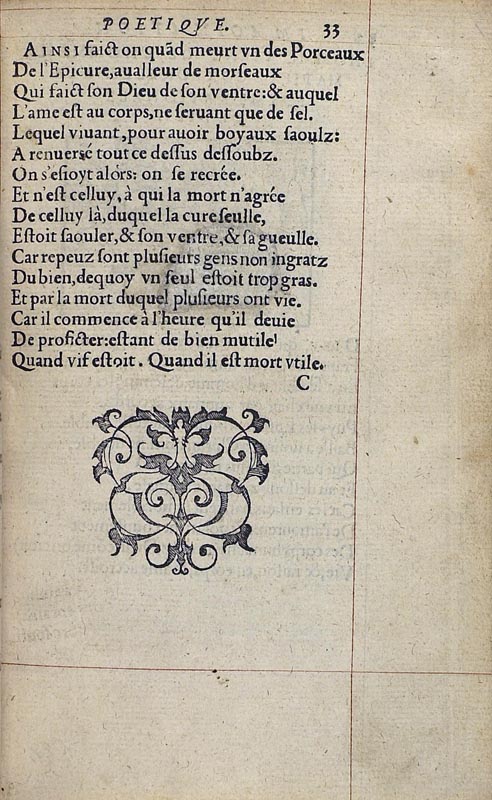 POETIQVE. 33
AINSI faict on quād meurt vn des Porceaux
De l'Epicure, aualleur de morſeaux
Qui faict ſon Dieu de ſon ventre: & auquel
L'ame eſt au corps, ne ſeruant que de ſel.
Lequel viuant, pour auoir boyaux ſaoulz:
A renuersé tout ce deſſus deſſoubz.
On s'eſioyt alórs: on ſe recrée.
Et n'eſt celluy, à qui la mort n'agrée
De celluy là, duquel la cure ſeulle,
Eſtoit ſaouler, & ſon ventre, & ſa gueulle.
Car repeuz ſont pluſieurs gens non ingratz
Du bien, dequoy vn ſeul eſtoit trop gras.
Et par la mort duquel pluſieurs ont vie.
Car il commence à l'heure qu'il deuie
De proficter: eſtant de bien mutile
Quand vif eſtoit. Quand il eſt mort vtile.
C